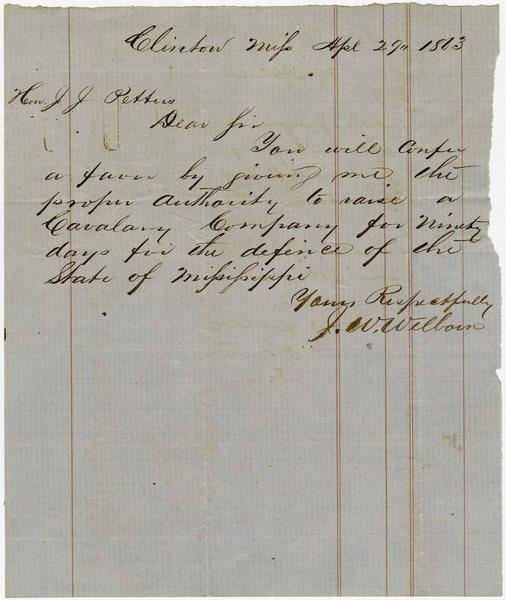 Clinton Miss Apl 29th 1863
Hon. J J Pettus
Dear Sir
You will confer
a favor by giving me the
proper authority to raise a
Cavalary Company for Ninety
days for the defence of the
State of Mississippi
Yours Respectfully
J. W. Welborn